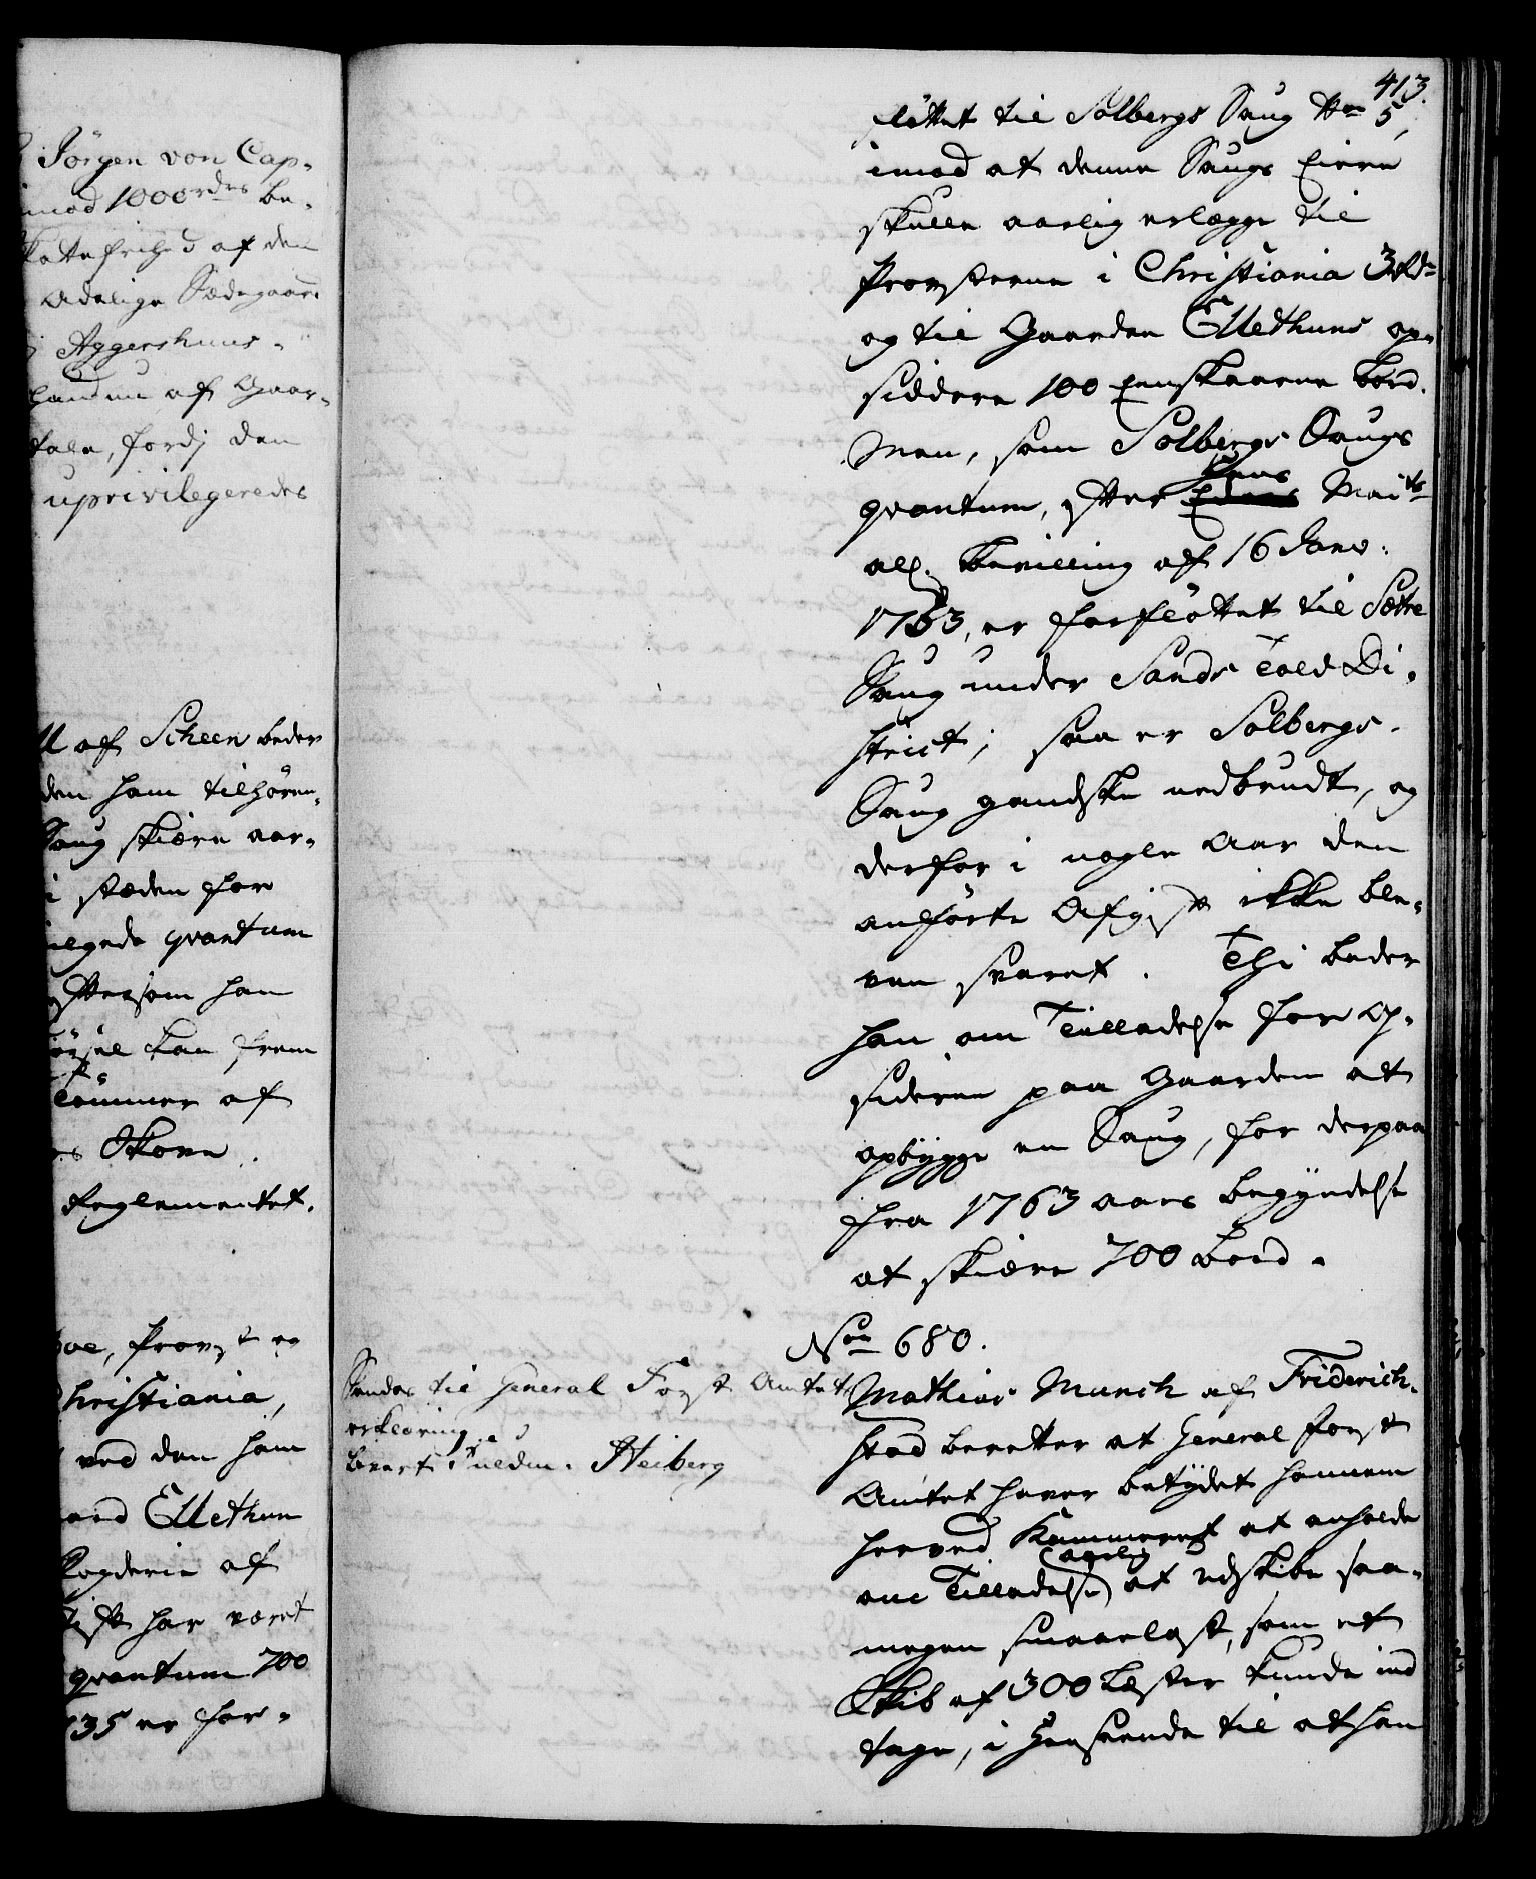 Jörgen von Cap-
imod 1000 rdrs be-
katte frihed af den
Adelige Sædegaard
i Aggershuus-
af Gaar-
tale, fordj den
uprivilegerede
af Scheen beder
den ham tilhøren-
Saug skiære aar-
i stæden for
qvantum
som han
kan frem
Tömmer af
Skove.
Reglementet.
Provst og
Christiania,
ved den ham
Ellethun
Fogderie af
har været
qvantum 700
35 er for-
413.
flöttet til Solbergs Saug No 5,
imod at denne Saugs Eiere
skulle aarlig erlegge til
Provsterne i Christiania 3 Rd
og til Gaarden Ellethuns op-
siddere 100 Eenskaarne bord.
Men, som Solbergs Saugs
qvantum, efter Hans Mait:
all. bevilling af 16 Janv:
1753, er forflöttet til Sætre
Saug under Sands Told Di-
strict; saa er Solbergs-
Saug gandske nedbrudt, og
derfor i nogle Aar den
anførte Afgift ikke ble-
ven svaret. Thi beder
han om Tilladelse for Op-
sidderne paa Gaarden at
opbygge en Saug, for derpaa
fra 1763 aars begyndelse
at skiære 700 bord.
No 680.
Sendes til General Forst Amtets
erklæring
Heiberg
Mathias Munch af Friderich-
stad beretter at General Forst
Amtet haver betydet hannem
herved Kammeret at anholde
om Tilladelse aarlig at udskibe saa-
megen smaalast, som et
Skib af 300 Læster kunde ind
tage, i Henseende til at han